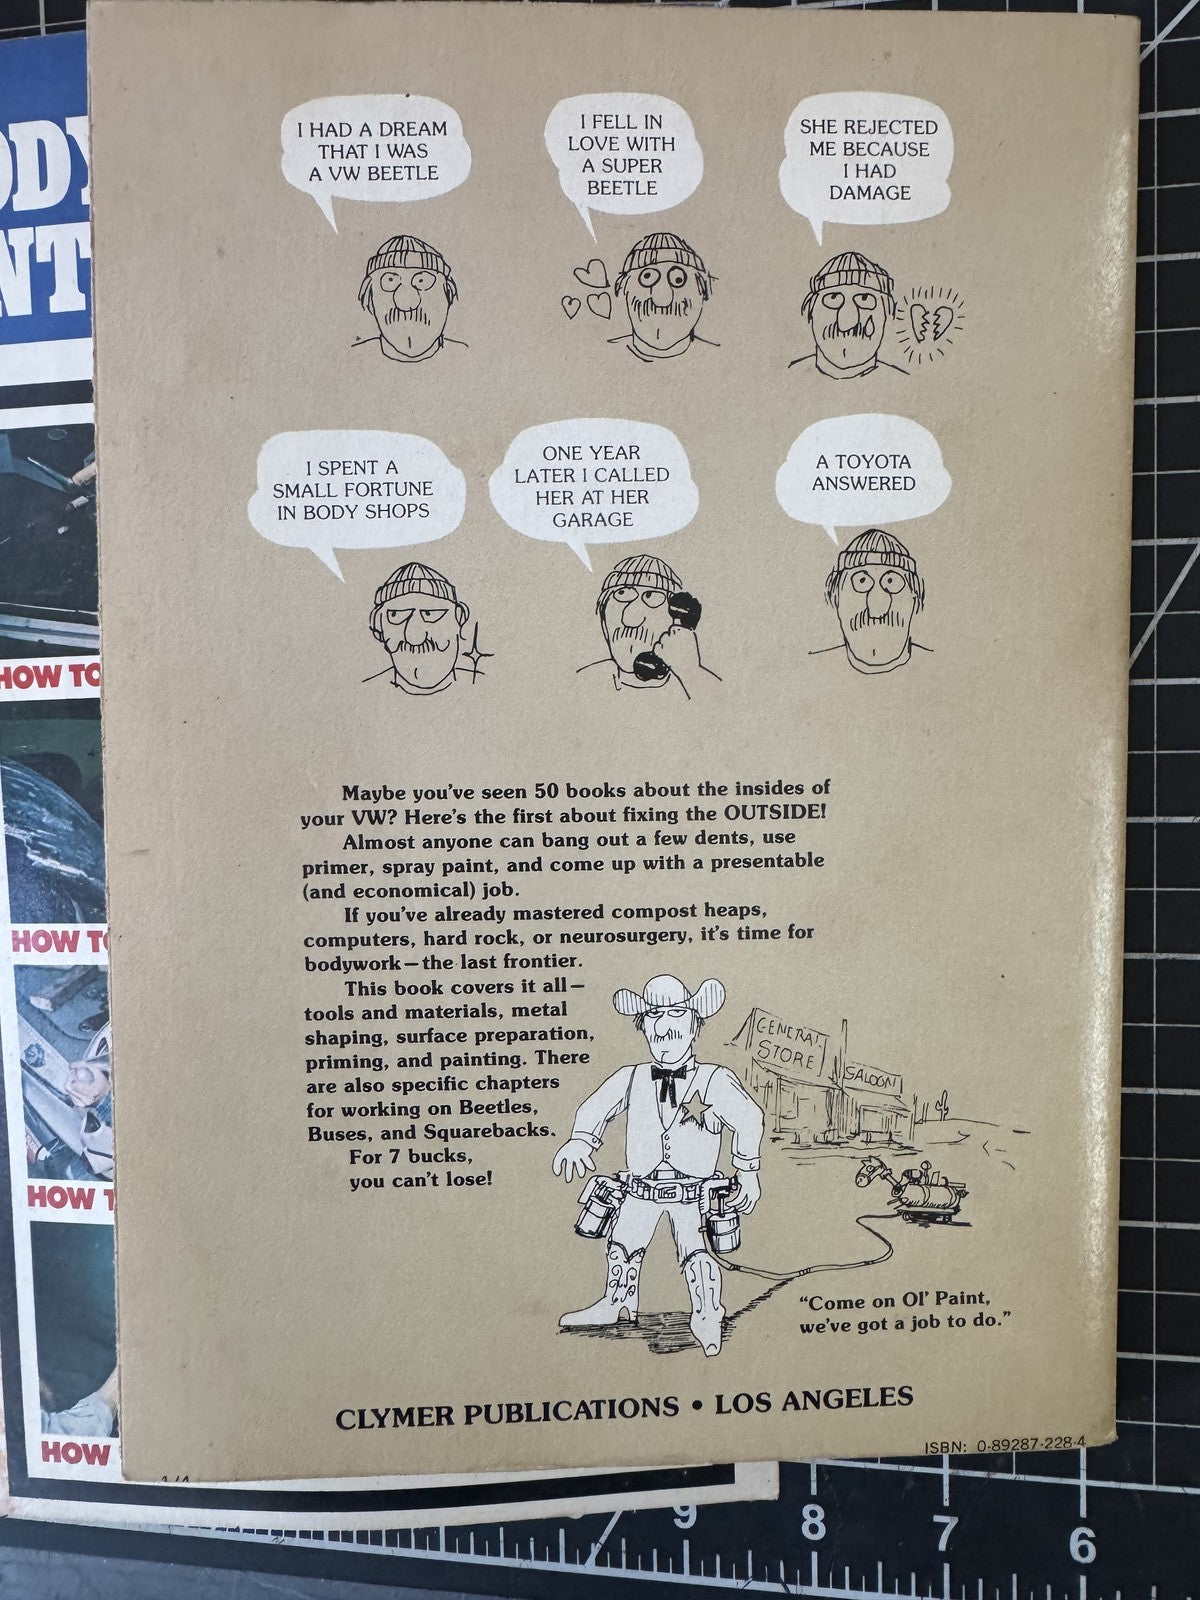 I HAD A DREAM
THAT I WAS
A VW BEETLE
I FELL IN
LOVE WITH
A SUPER
BEETLE
SHE REJECTED
ME BECAUSE
I HAD
DAMAGE
I SPENT A
SMALL FORTUNE
IN BODY SHOPS
ONE YEAR
LATER I CALLED
HER AT HER
GARAGE
A TOYOTA
ANSWERED
Maybe you've seen 50 books about the insides of
your VW? Here's the first about fixing the OUTSIDE!
Almost anyone can bang out a few dents, use
primer, spray paint, and come up with a presentable
(and economical) job.
If you've already mastered compost heaps,
computers, hard rock, or neurosurgery, it's time for
bodywork—the last frontier.
This book covers it all—
tools and materials, metal
shaping, surface preparation,
priming, and painting. There
are also specific chapters
for working on Beetles,
Buses, and Squarebacks.
For 7 bucks,
you can't lose!
GENERAL
STORE
SALOON
“Come on Ol' Paint,
we've got a job to do.”
CLYMER PUBLICATIONS • LOS ANGELES
ISBN: 0-89287-228-4
HOW TO
HOW TO
HOW T
HOW
9 8 7 6